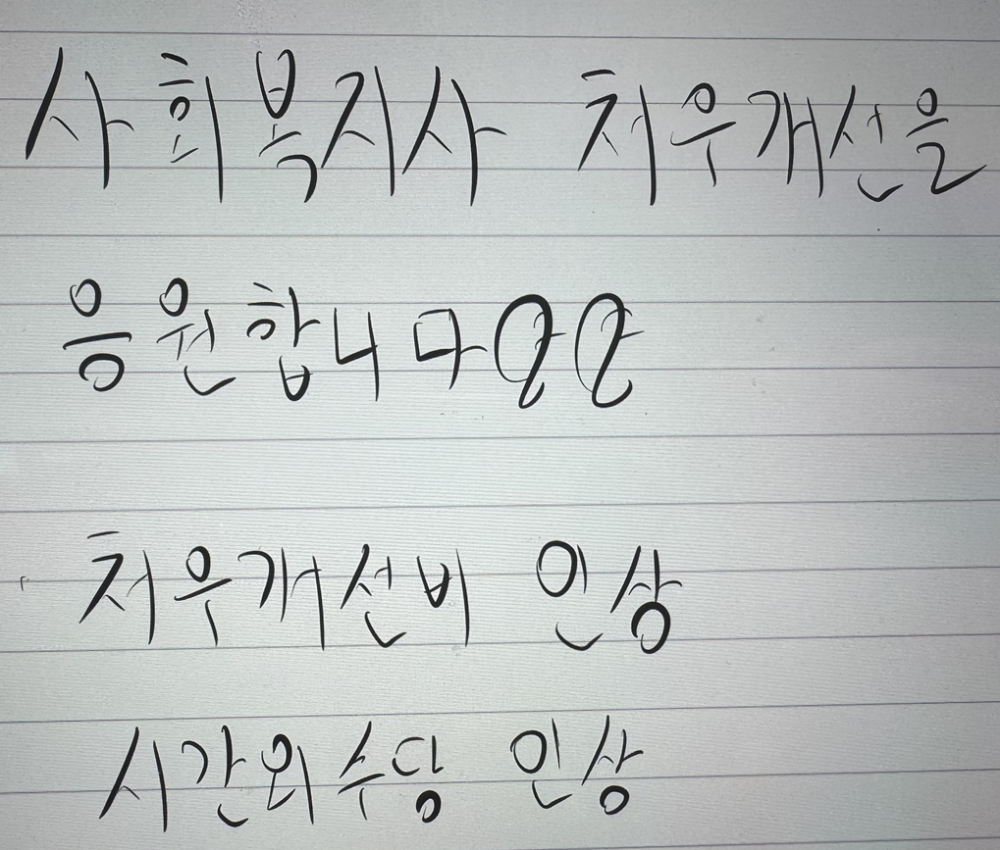 사회복지사 처우개선을
응원합니다
처우개선비 인상
시간외수당 인상